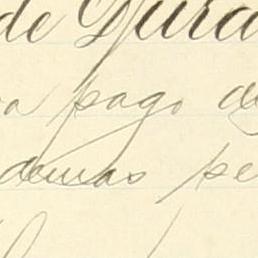 de Dura
a pago de
demas pe